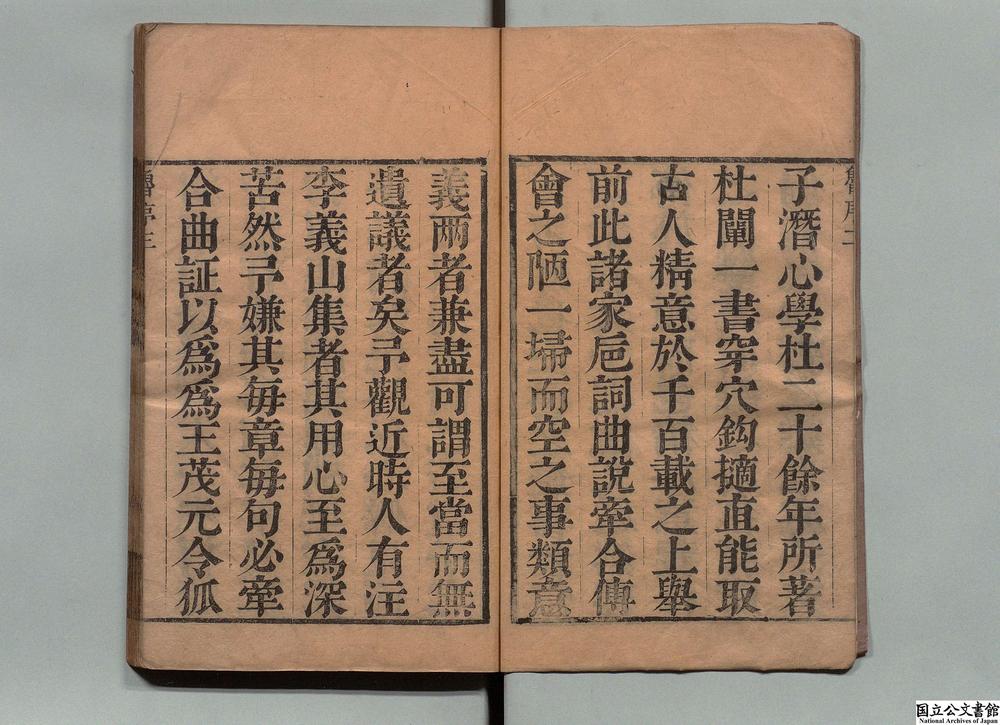 子潛心學杜二十餘年所著
杜闡一書穿穴鈎擿直能取
古人精意於千百載之上舉
前此諸家巵詞曲說牽合傅
會之陋一埽而空之事類意
義兩者兼盡可謂至當而無
遺議者矣予觀近時人有注
李義山集者其用心至爲深
苦然予嫌其每章每句必牽
合曲証以爲爲王茂元令狐
魯序三
国立公文書館
National Archives of Japan